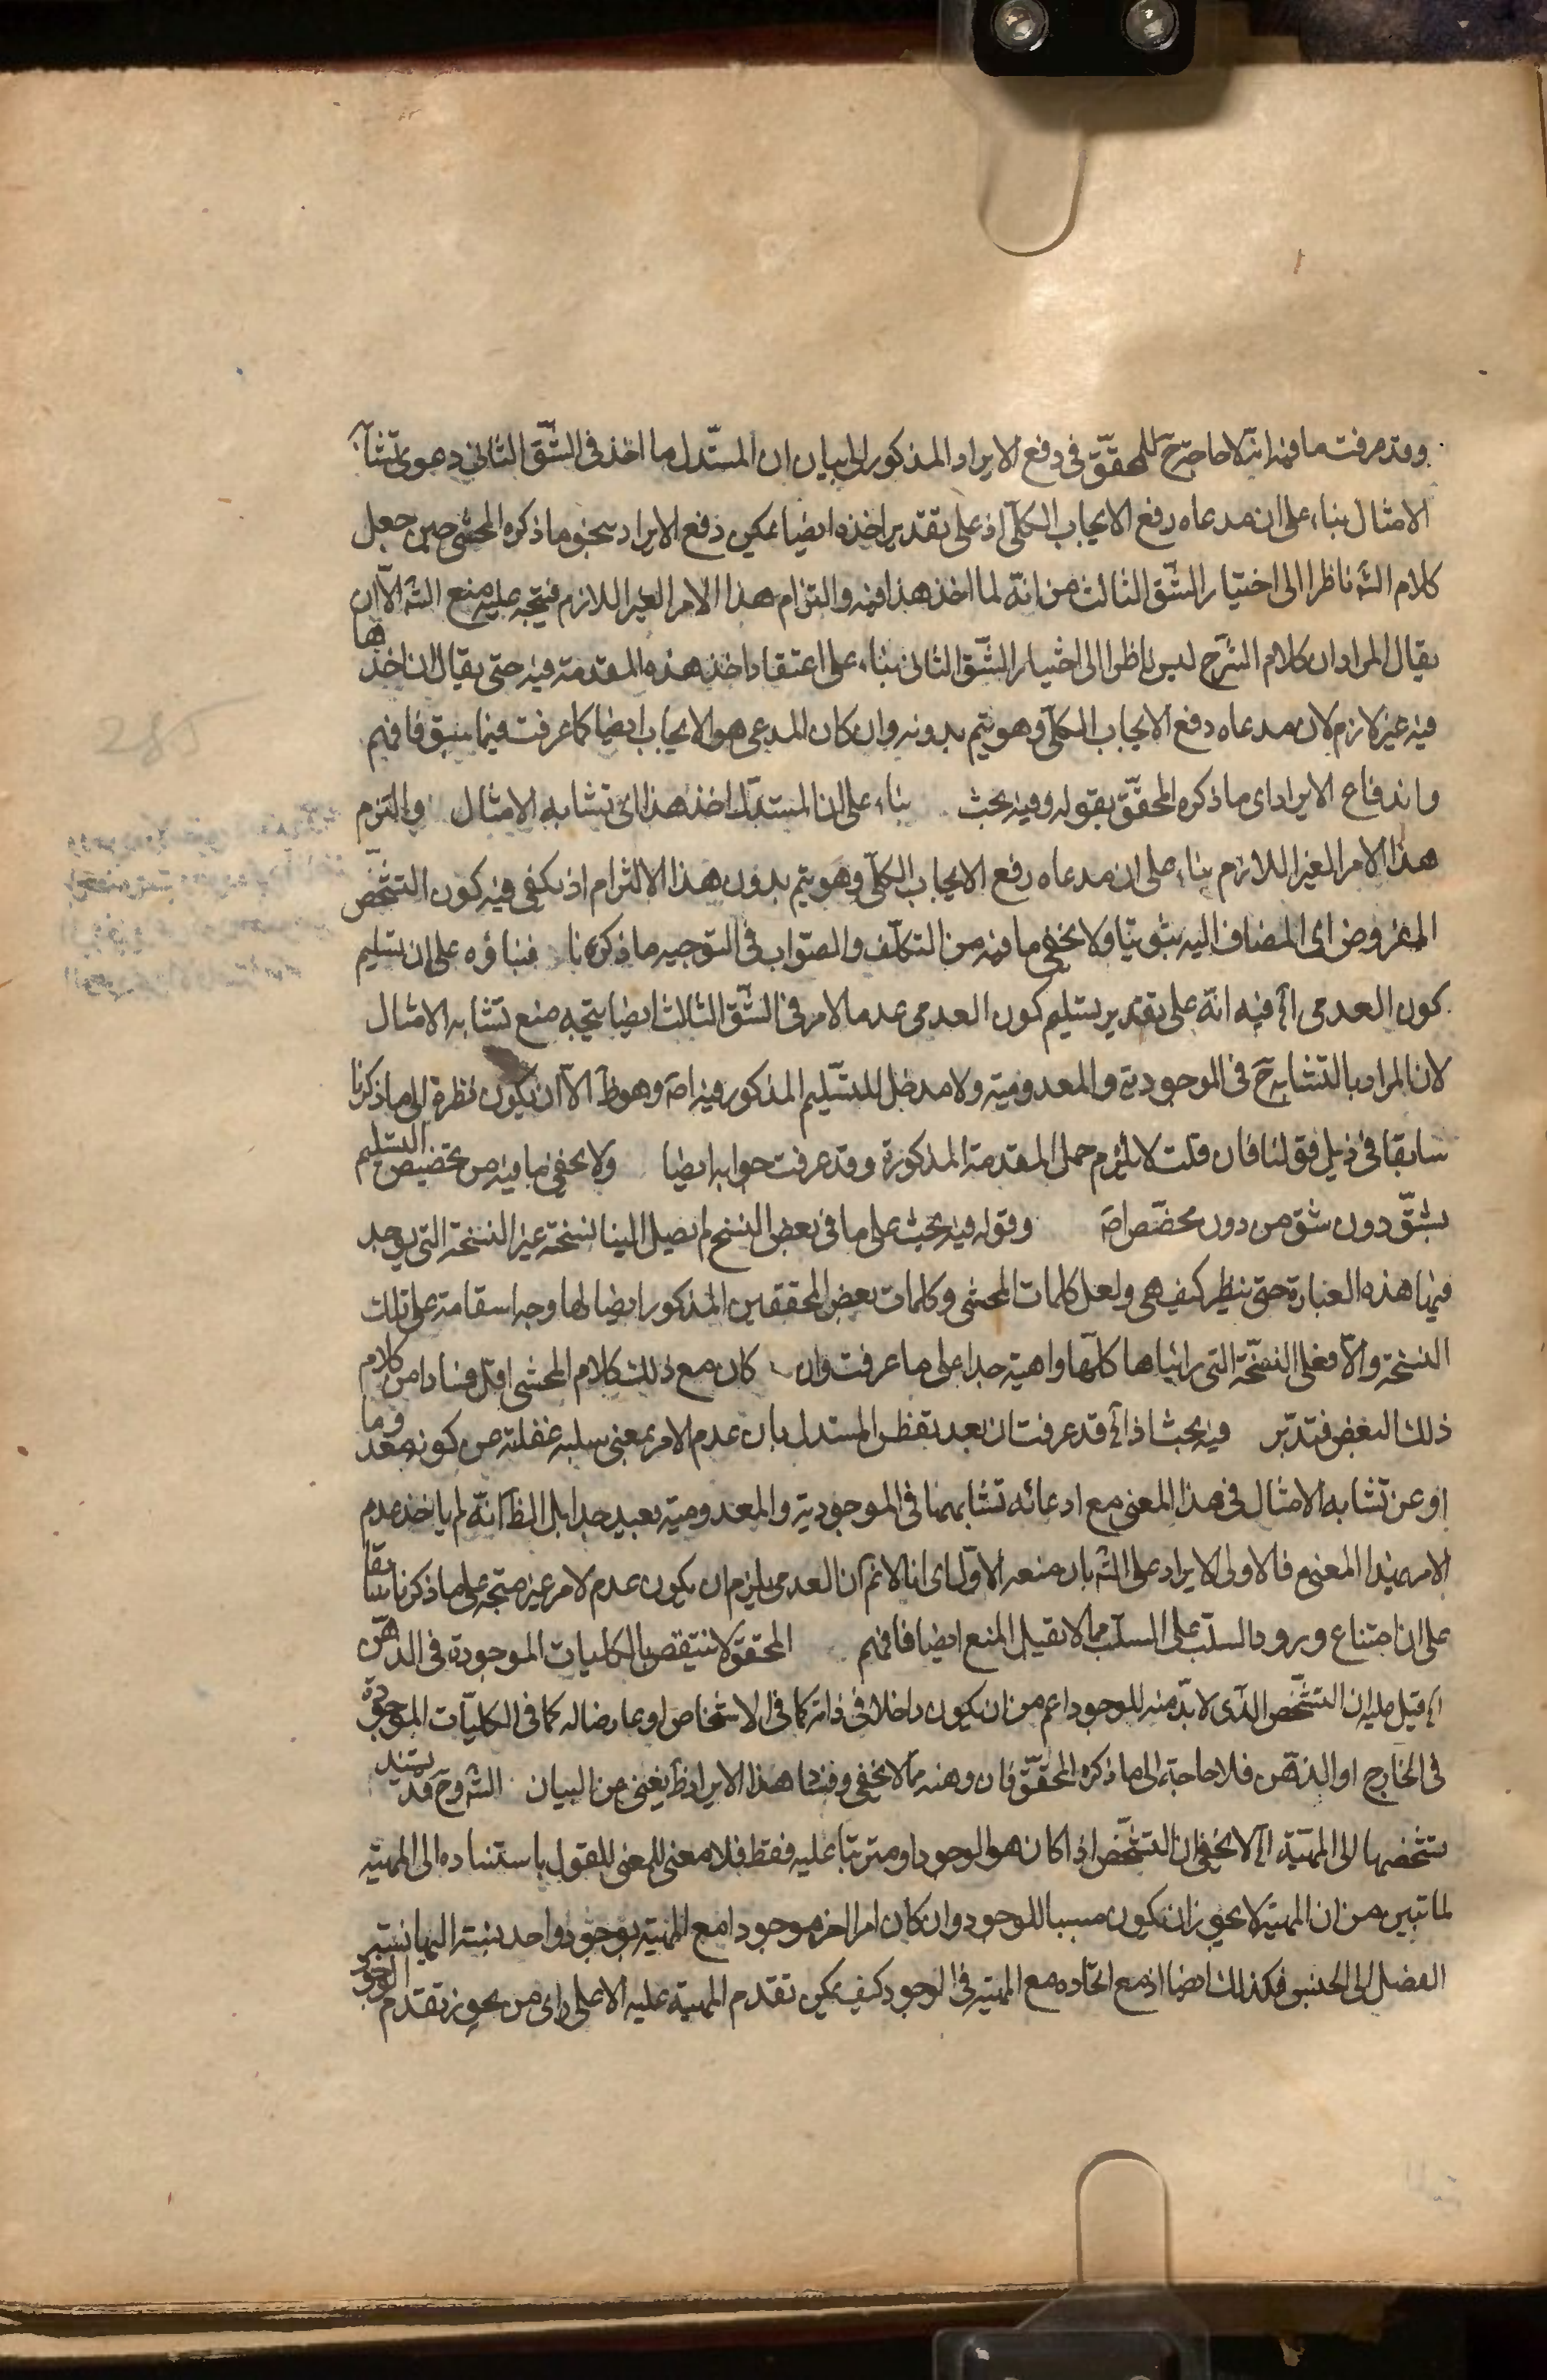 وقد عرفت ما فيه انه لا حاجة ح للمحقق فى دفع الايراد المذكور الى بيان ان المستدل ما اخذ فى الشق الثانى دعوى تشابه
الامثال بناء على ان مدعاه رفع الايجاب الكلى اذ على تقدير اخذه ايضا يمكن دفع الايراد بنحو ما ذكره المحشى حين جعل
كلام الشه ناظرا الى اختيار الشق الثالث من انه لما اخذ هذا فيه والتزام هذا الامر الغير اللازم فيتجه عليه منع الشه الا ان
يقال المراد ان كلام الشرح ليس ناظرا الى اختيار الشق الثانى بناء على اعتقاد اخذ هذه المقدمة فيه حتى يقال ان اخذها
فيه غير لازم لان مدعاه رفع الايجاب الكلى وهو يتم بدونه وان كان المدعى هو الايجاب ايضا كما عرفت فيما سبق فافهم
واندفاع الايراد اى ما ذكره المحقق بقوله وفيه بحث بناء على ان المستدل اخذ هذا اى تشابه الامثال والتزم
هذا الامر الغير اللازم بناء على ان مدعاه رفع الايجاب الكلى وهو يتم بدون هذا الالتزام اذ يكفى فيه كون التشخص
المفروض اى المضاف اليه ثبوتيا ولا يخفى ما فيه من التكلف والصواب فى التوجيه ما ذكرنا فبناؤه على ان تسليم
كون العدمى اه فيه انه على تقدير تسليم كون العدمى عدما لامر فى الشق الثالث ايضا يتجه منع تشابه الامثال
لان المراد بالتشابه ح فى الموجودية والمعدومية ولا مدخل للتسليم المذكور فيه اصه وهو ظ الا ان يكون نظره الى ما ذكرنا
سابقا فى ذيل قولنا فان قلت لا يلزم حمل المقدمة المذكورة وقد عرفت جوابه ايضا ولا يخفى ما فيه من تخصيص التسليم
بشق دون شق من دون مخصص اصه وقوله فيه بحث على ما فى بعض النسخ لم يصل الينا نسخة غير النسخة التى يوجد
فيها هذه العبارة حتى ننظر كيف هى ولعل كلمات المحشى وكلمات بعض المحققين المذكور ايضا لها وجه استقامة على تلك
النسخة والا فعلى النسخة التى رايناها كلها واهية جدا على ما عرفت وان كان مع ذلك كلام المحشى اقل فسادا من كلام
ذلك البعض فتدبر فيه بحث اذ اه قد عرفت ان بعد تفطن المستدل بان عدم الامر بمعنى سلبه غفلته عن كونه معدوما
او عن تشابه الامثال فى هذا المعنى مع ادعائه تشابهها فى الموجودية والمعدومية بعيد جدا بل الظ انه لم ياخذ عدم
الامر بهذا المعنى فالاولى الايراد على الشه بان منعه الاول اى انا لا نم ان العدمى يلزم ان يكون عدم لامر غير متجه على ما ذكرنا سابقا
على ان امتناع ورود السلب على السلب مما لا يقبل المنع ايضا فافهم المحقق لا ينتقض بالكليات الموجودة فى الذهن
اه قيل عليه ان التشخص الذى لا بد منه للوجود اعم من ان يكون داخلا فى ذاته كما فى الاشخاص او عارضا له كما فى الكليات الموجودة
فى الخارج او الذهن فلا حاجة الى ما ذكره المحقق فان وهنه مما لا يخفى وفساد هذا الايراد ظ يغنى عن البيان الشه وح قد يستند
تشخصها الى المهية اه لا يخفى ان التشخص اذا كان هو الوجود او مترتبا عليه فقط فلا معنى للمعنى للقول باستناده الى المهية
لما تبين من ان المهية لا يجوز ان يكون سببا للوجود وان كان امرا اخر موجودا مع المهية بوجود واحد نسبته اليها نسبة
الفصل الى الجنس فكذلك ايضا اذ مع اتحاده مع المهية فى الوجود كيف يمكن تقدم المهية عليه الا على راى من يجوز تقدم الوجود
285